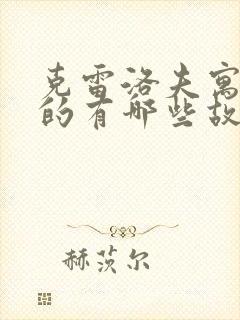 克雷洛夫寓
的有哪些故
赫茨尔